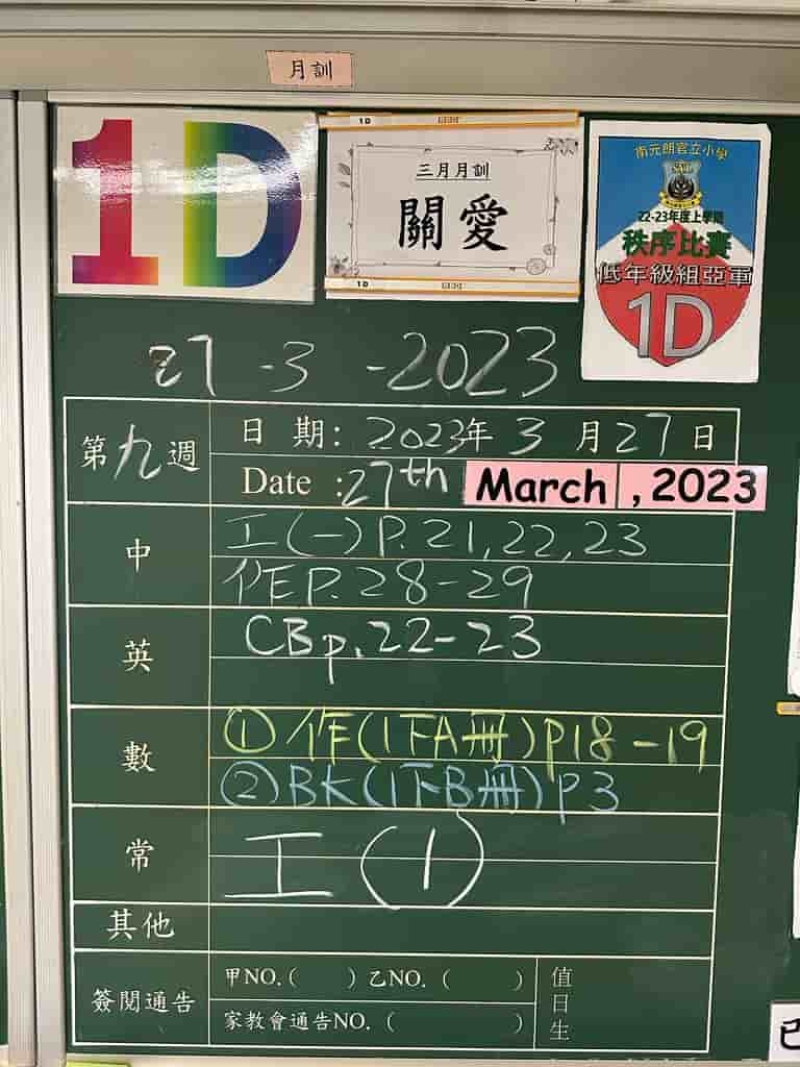 月訓
1D
1D
三月月訓
關愛
1D
南元朗官立小學
22-23年度上學期
秩序比賽
低年級組亞軍
1D
27-3-2023
第九週
日期：2023年3月27日
Date：27th March, 2023
中
工(一)P.21,22,23
作P.28-29
英
CBp.22-23
數
①作(1下A冊)p18-19
②BK(1下B冊)p3
常
工(1)
其他
簽閱通告
甲NO.(　　)乙NO.(　　)
家教會通告NO.(　　)
值日生
已